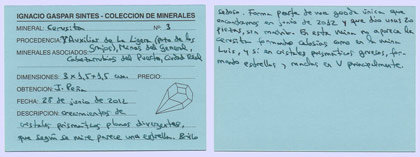 IGNACIO GASPAR SINTES - COLECCION DE MINERALES
MINERAL: Cerusita Nº 3
PROCEDENCIA: Auxiliar de La Ligera (Pozo de los
MINERALES ASOCIADOS: Minas del General,
Cabezarrubias del Puerto, Ciudad Real
DIMENSIONES: 3 x 1,5 x 3,5 cm PRECIO:
OBTENCIÓN: J. Peña
FECHA: 28 de junio de 2012
DESCRIPCIÓN: crecimientos de
cristales prismáticos planos divergentes,
que según se mire parece una estrella. Brillo
sedoso. Forma parte de una geoda única que
encontramos en junio de 2012 y que dio unas 60
piezas, sin cuarzo. En esta mina no aparece la
cerusita formando celosías como en la mina
Luis, y sí en cristales prismáticos grises,
formando estrellas y maclas en V principalmente.